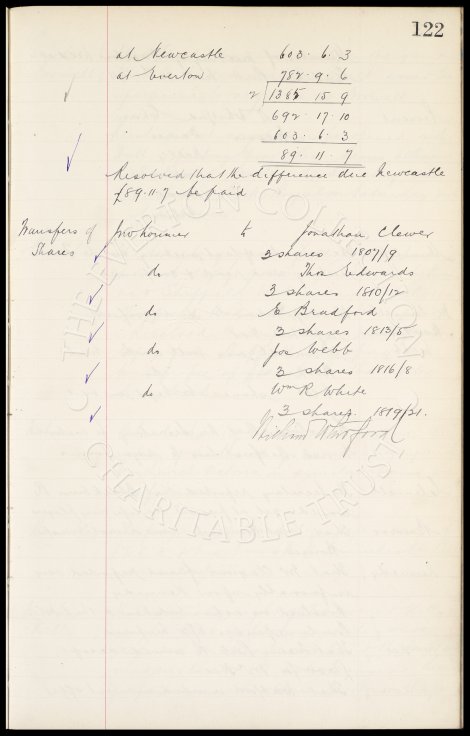 122
at Newcastle 603. 6. 3
at Everton 782. 9. 6
2 1385 15 9
692. 17. 10
603. 6. 3
89. 11. 7
Resolved that the difference due Newcastle
£89.11.7 be paid
Transfers of Shares
to Jonathan Clewer
3 shares 1807/9
do Thos Edwards
3 shares 1810/12
do E Bradford
3 shares 1813/5
do Jos Webb
3 shares 1816/8
do Wm R White
3 shares. 1819/21.
THE EVERTON COLLECTION
CHARITABLE TRUST